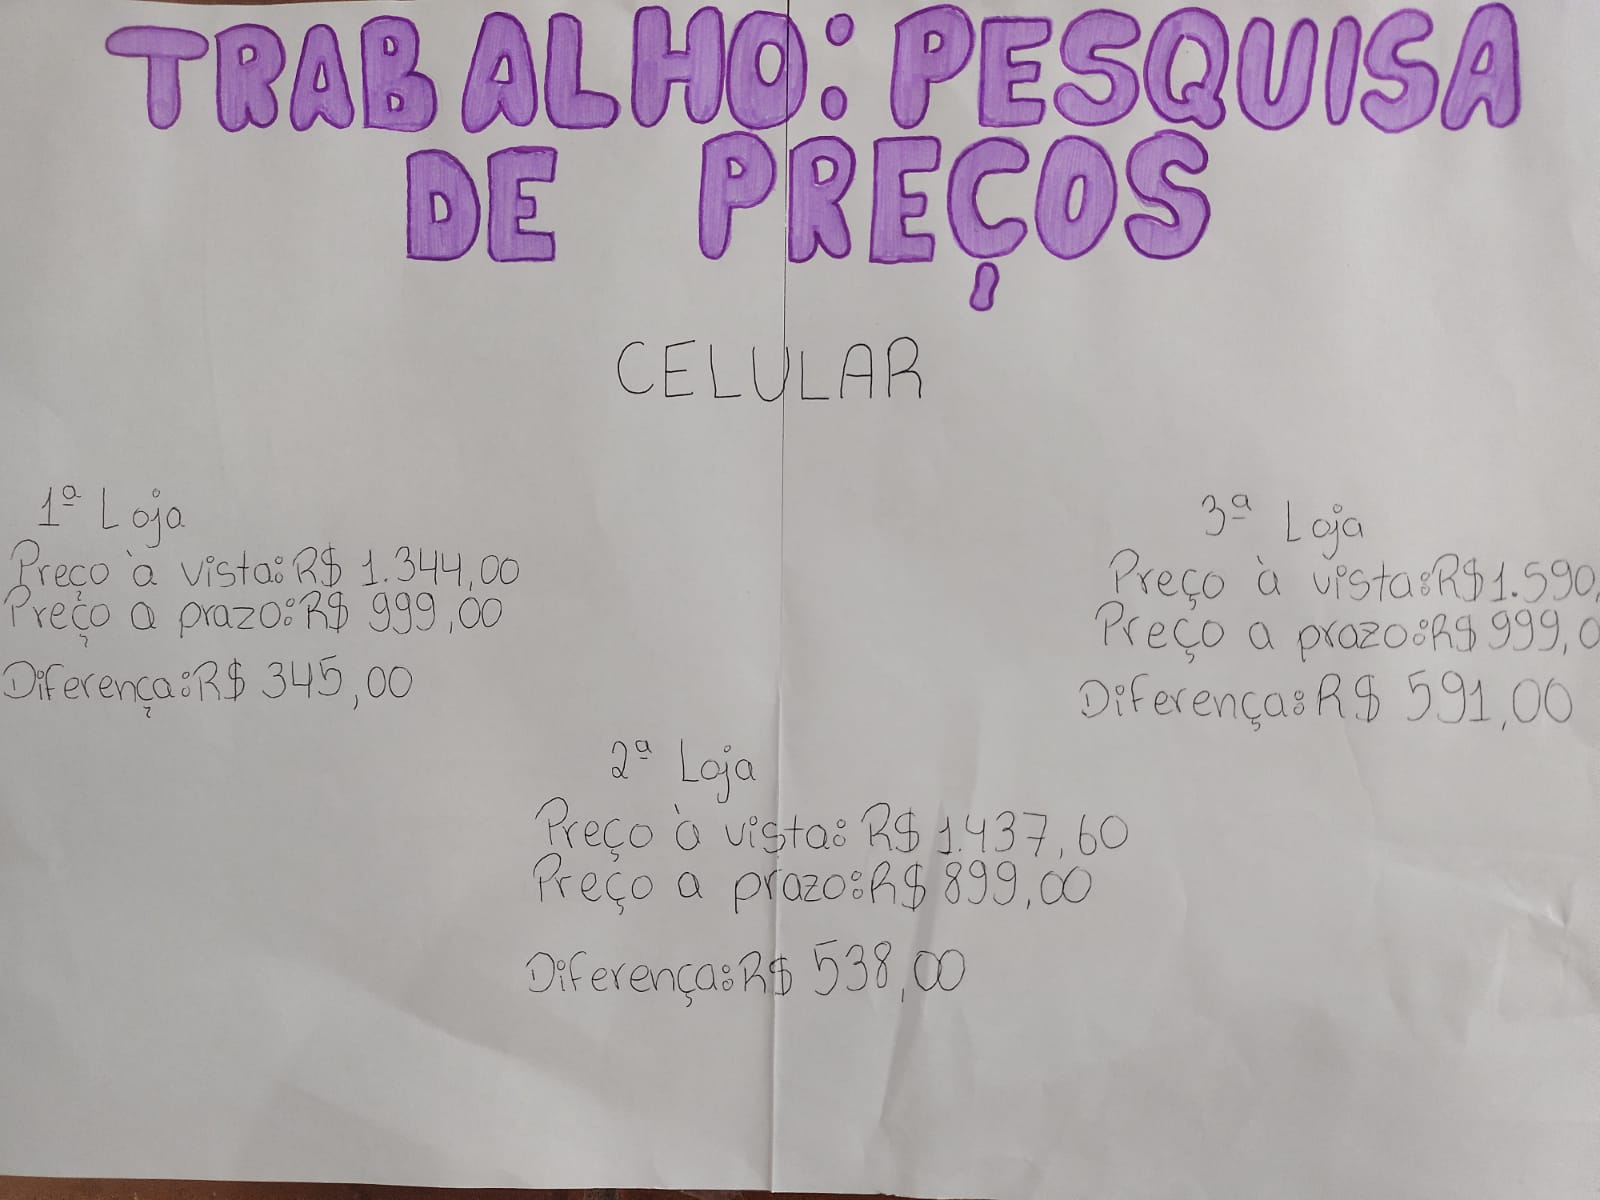 TRABALHO: PESQUISA
DE PREÇOS
CELULAR
1ª Loja
Preço à vista: R$ 1.344,00
Preço a prazo: R$ 999,00
Diferença: R$ 345,00
2ª Loja
Preço à vista: R$ 1.437,60
Preço a prazo: R$ 899,00
Diferença: R$ 538,00
3ª Loja
Preço à vista: R$ 1.590,
Preço a prazo: R$ 999,0
Diferença: R$ 591,00